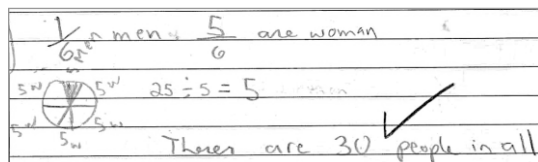 1/6 men men 5/6 are woman
5w 5w 25 ÷ 5 = 5
5w 5w 5w
Theres are 30 people in all